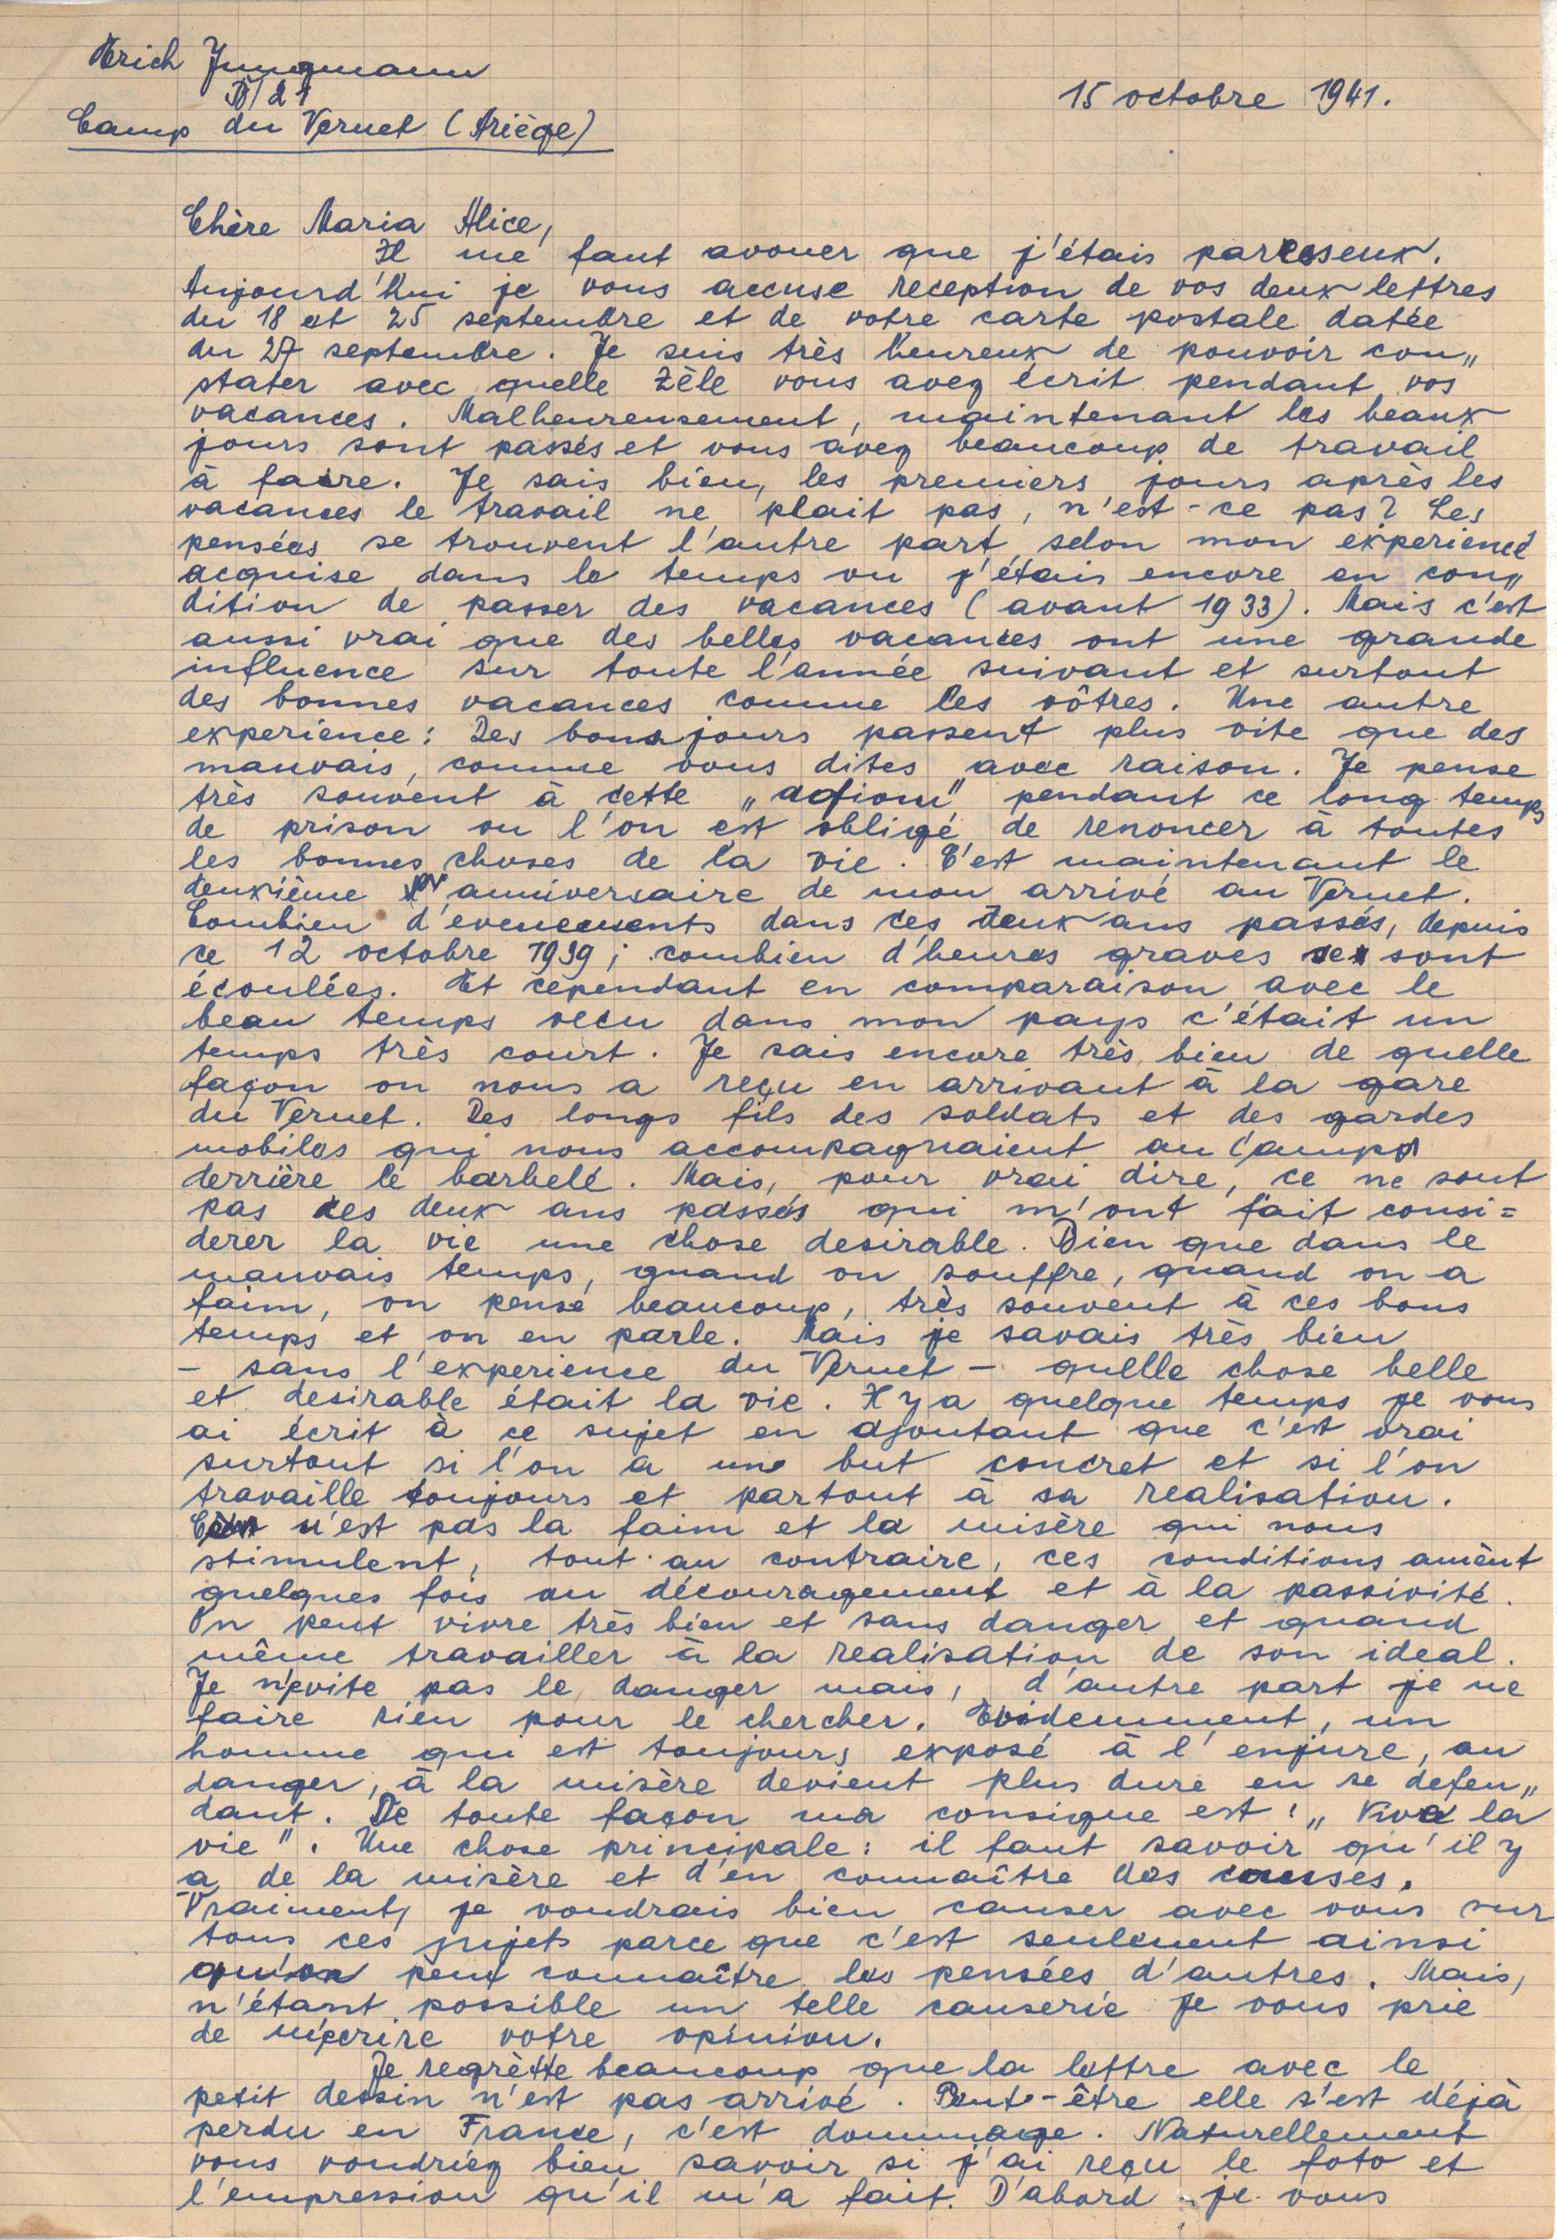 Erich Jungmann
Camp du Vernet (Ariège)
15 octobre 1941.
Chère Maria Alice,
Il me faut avouer que j'étais paresseux.
Aujourd'hui je vous accuse reception de vos deux lettres
du 18 et 25 septembre et de votre carte postale datée
du 27 septembre. Je suis très heureux de pouvoir con„
stater avec quelle zèle vous avez écrit pendant vos
vacances. Malheureusement, maintenant les beaux
jours sont passés et vous avez beaucoup de travail
à faire. Je sais bien, les premiers jours après les
vacances le travail ne plait pas, n'est-ce pas? Les
pensées se trouvent l'autre part, selon mon experience
acquise dans le temps ou j'étais encore en con„
dition de passer des vacances (avant 1933). Mais c'est
aussi vrai que des belles vacances ont une grande
influence sur toute l'année suivant et surtout
des bonnes vacances comme les vôtres. Une autre
experience: Des bons jours passent plus vite que des
mauvais, comme vous dites avec raison. Je pense
très souvent à cette „ " pendant ce long temps
de prison ou l'on est obligé de renoncer à toutes
les bonnes choses de la vie. C'est maintenant le
deuxième anniversaire de mon arrivé au Vernet.
Combien d'evenements dans ces deux ans passés, depuis
ce 12 octobre 1939; combien d'heures graves se sont
écoulées. Et cependant en comparaison avec le
beau temps vecu dans mon pays c'était un
temps très court. Je sais encore très bien de quelle
façon on nous a reçu en arrivant à la gare
du Vernet. Des longs fils des soldats et des gardes
mobiles qui nous accompagnaient au Camp
derrière le barbelé. Mais, pour vrai dire, ce ne sont
pas ces deux ans passés qui m'ont fait consi=
derer la vie une chose desirable. Bien que dans le
mauvais temps, quand on souffre, quand on a
faim, on pense beaucoup, très souvent à ces bons
temps et on en parle. Mais je savais très bien
– sans l'experience du Vernet – quelle chose belle
et desirable était la vie. Il y a quelque temps je vous
ai écrit à ce sujet en ajoutant que c'est vrai
surtout si l'on a une but concret et si l'on
travaille toujours et partout à sa realisation.
n'est pas la faim et la misère qui nous
stimulent, tout au contraire, ces conditions amènt
quelques fois au découragement et à la passivité.
On peut vivre très bien et sans danger et quand
même travailler à la realisation de son ideal.
Je n'evite pas le danger mais, d'autre part je ne
faire rien pour le chercher. Evidemment, un
homme qui est toujours exposé à l'enjure, au
danger, à la misère devient plus dure en se defen„
dant. De toute façon ma consigne est: „Viva la
vie". Une chose principale: il faut savoir qu'il y
a de la misère et d'en connaître des causes.
Vraiment, je voudrais bien causer avec vous sur
tous ces sujets parce que c'est seulement ainsi
qu'on peut connaître les pensées d'autres. Mais,
n'étant possible un telle causerie je vous prie
de m'écrire votre opinion.
Je regrètte beaucoup que la lettre avec le
petit dessin n'est pas arrivé. Peut-être elle s'est déjà
perdu en France, c'est dommage. Naturellement
vous voudriez bien savoir si j'ai reçu le foto et
l'empression qu'il m'a fait. D'abord je vous